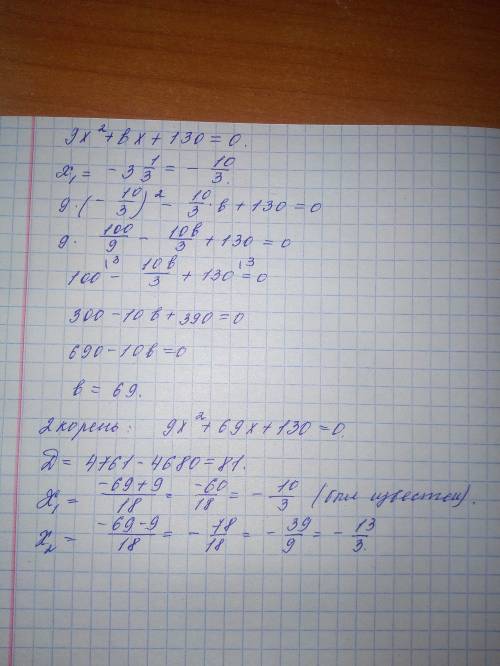 9x² + вx + 130 = 0.
x₁ = -3 1/3 = - 10/3.
9·(- 10/3)² - 10/3·в + 130 = 0
9· 100/9 - 10в/3 + 130 = 0
100\3 - 10в/3 + 130\3 = 0
300 - 10в + 390 = 0
690 - 10в = 0
в = 69.
2 корень: 9x² + 69x + 130 = 0.
Д = 4761 - 4680 = 81.
x₁ = (-69+9)/18 = -60/18 = - 10/3 (был известен).
x₂ = (-69-9)/18 = - 78/18 = - 39/9 = - 13/3.